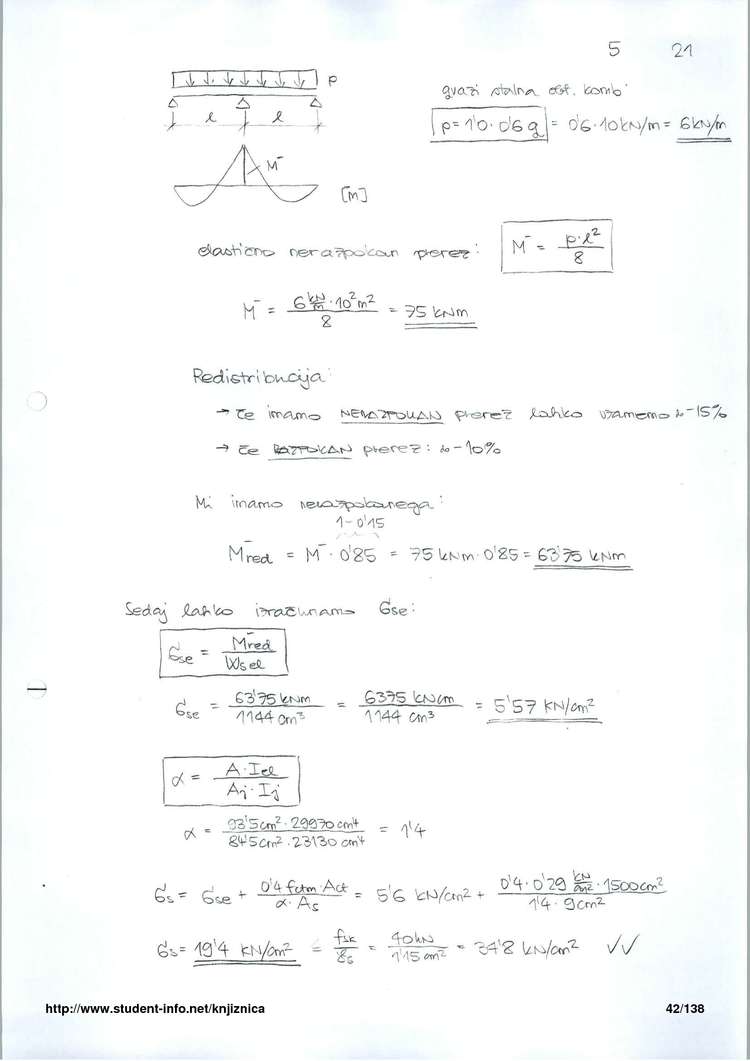 5 21
p
l l
M⁻
[m]
gvazi stalna obt. komb:
p = 1'0 · 0'6 g = 0'6 · 10 kN/m = 6 kN/m
elastično nerazpokan prerez: M⁻ = p·l² / 8
M⁻ = 6 kN/m · 10² m² / 8 = 75 kNm
Redistribucija:
→ če imamo NERAZPOKAN prerez lahko vzamemo do -15%
→ če RAZPOKAN prerez: do -10%
Mi imamo nerazpokanega:
1-0'15
M⁻red = M⁻ · 0'85 = 75 kNm · 0'85 = 63'75 kNm
Sedaj lahko izračunamo σse:
σse = M⁻red / Wsel
σse = 63'75 kNm / 1144 cm³ = 6375 kNcm / 1144 cm³ = 5'57 kN/cm²
α = A · Iel / Aj · Ij
α = 93'5 cm² · 29970 cm⁴ / 84'5 cm² · 23130 cm⁴ = 1'4
σs = σse + 0'4 fctm · Act / α · As = 5'6 kN/cm² + 0'4 · 0'29 kN/cm² · 1500 cm² / 1'4 · 9 cm²
σs = 19'4 kN/cm² ≤ fsk / γs = 40 kN / 1'15 cm² = 34'8 kN/cm² ✓✓
http://www.student-info.net/knjiznica 42/138